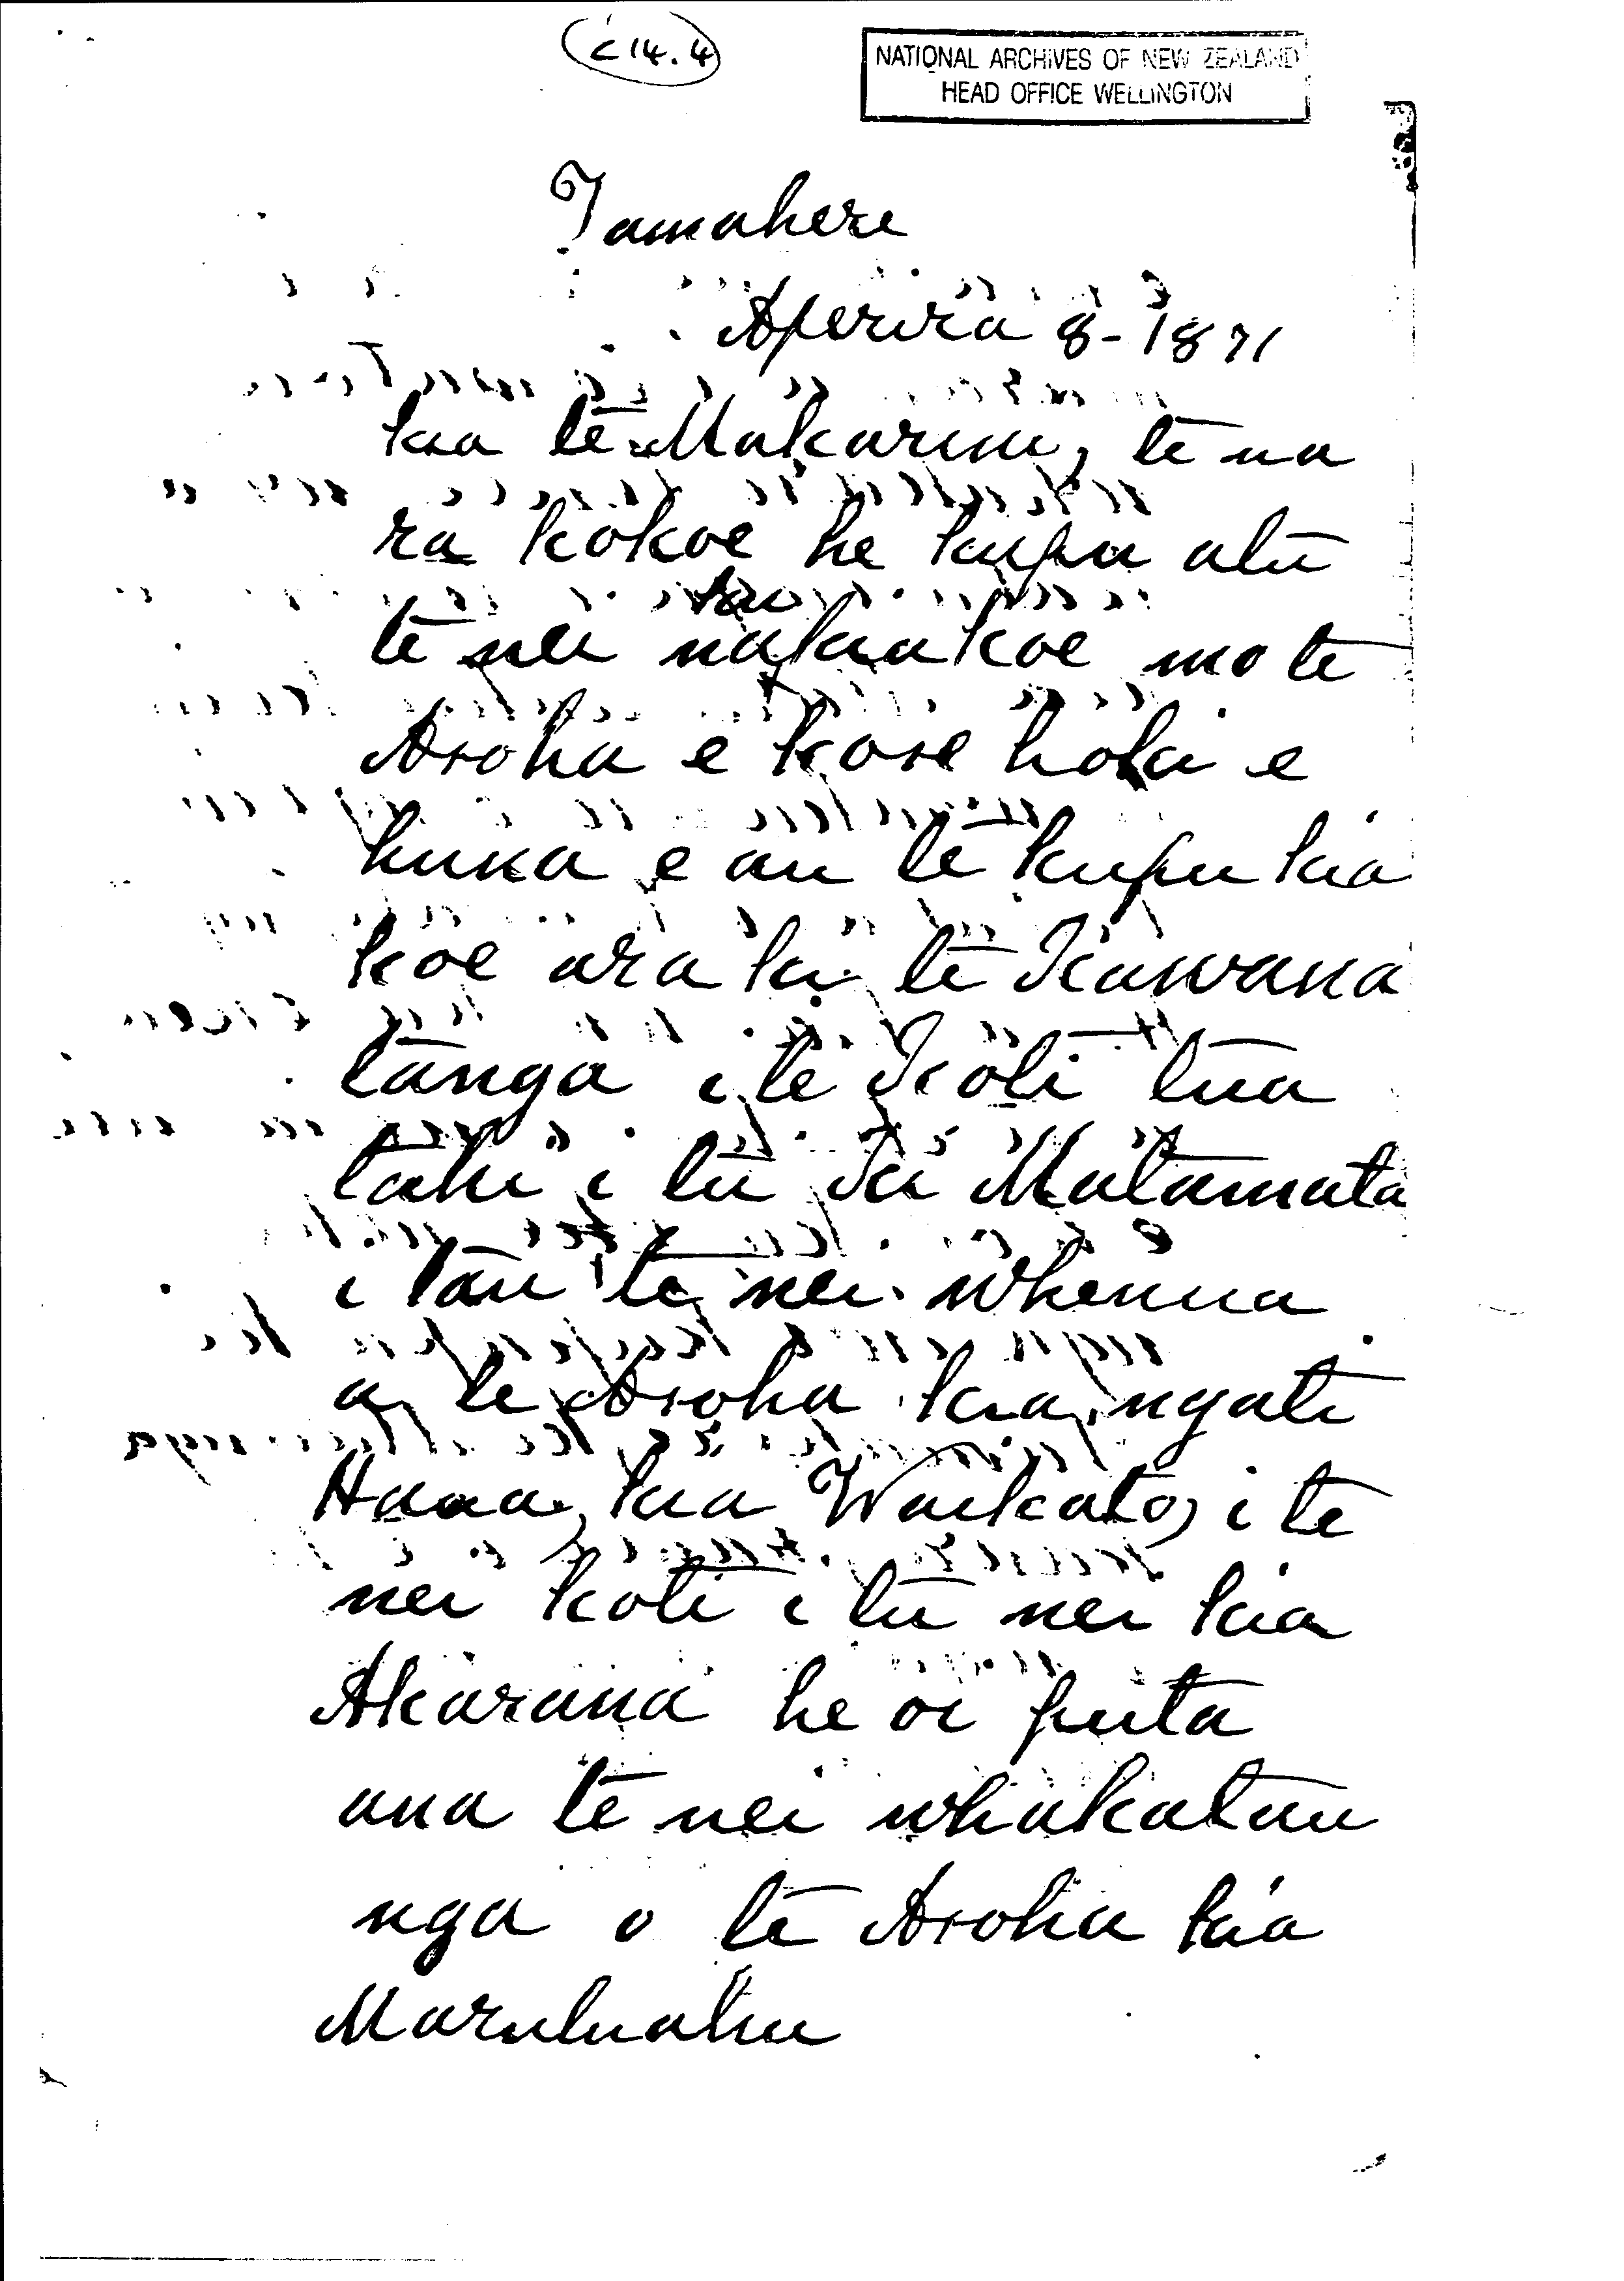 C14.4
NATIONAL ARCHIVES OF NEW ZEALAND
HEAD OFFICE WELLINGTON
Tamahere
Aperira 8-1871
kia te Makarini, te na
ra kokoe he kupu atu
te nei kia koe mo te
Aroha e kore hoki e
huna e au te kupu kia
koe ara ki te Kawana
tanga i te Koti tua
tahi i tu ki Matamata
i tau te nei whenua
a te Aroha kia ngati
Haua, kia Waikato, i te
nei koti i tu nei kia
Akarana he oi puta
ana te nei whakatau
nga o te Aroha kia
Marutuahu